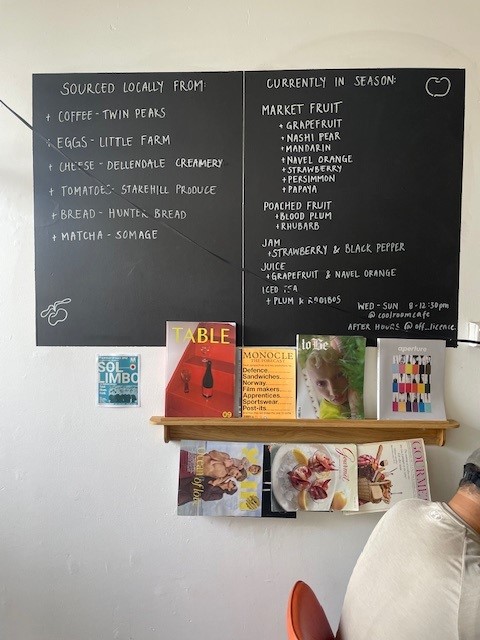 SOURCED LOCALLY FROM:
+ COFFEE - TWIN PEAKS
+ EGGS - LITTLE FARM
+ CHEESE - DELLENDALE CREAMERY
+ TOMATOES - STAKEHILL PRODUCE
+ BREAD - HUNTER BREAD
+ MATCHA - SOMAGE
CURRENTLY IN SEASON:
MARKET FRUIT
+ GRAPEFRUIT
+ NASHI PEAR
+ MANDARIN
+ NAVEL ORANGE
+ STRAWBERRY
+ PERSIMMON
+ PAPAYA
POACHED FRUIT
+ BLOOD PLUM
+ RHUBARB
JAM
+ STRAWBERRY & BLACK PEPPER
JUICE
+ GRAPEFRUIT & NAVEL ORANGE
ICED TEA
+ PLUM & ROOIBOS
WED - SUN 8 - 12:30pm
@coolroomcafe
AFTER HOURS @off_licence
SOL
LIMBO
TABLE
09
MONOCLE
THE FORECAST
Defence.
Sandwiches.
Norway.
Film makers.
Apprentices.
Sportswear.
Post-its.
to Be
aperture
Gourmet
GOURMET